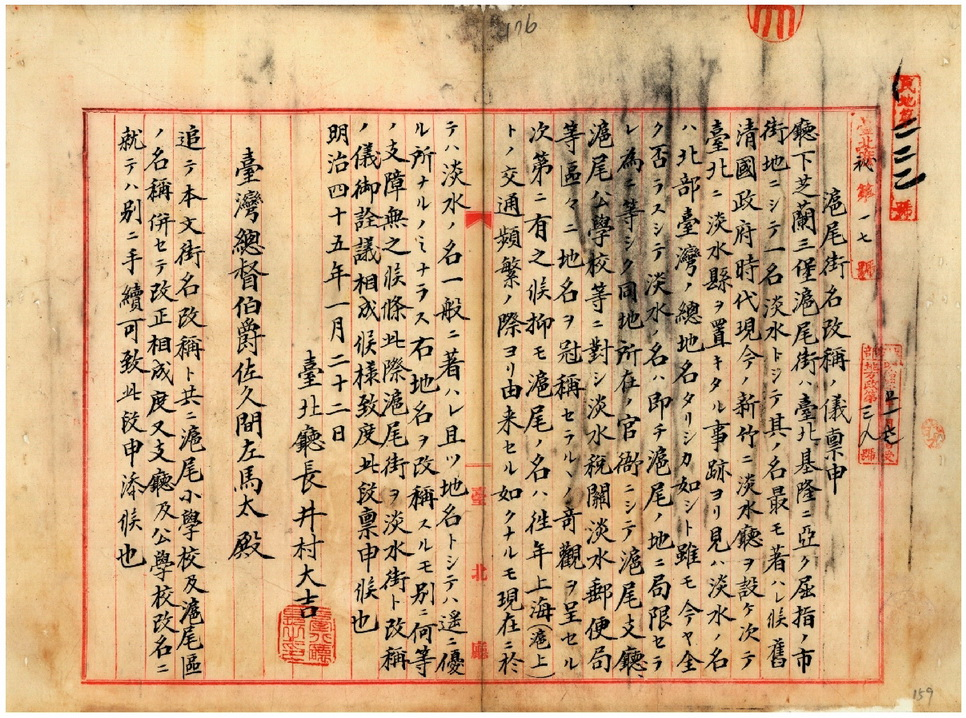 176
民地第二三三號
臺北秘第一七號
滬尾街名改稱ノ儀稟申
廳下芝蘭三堡滬尾街ハ臺北基隆ニ亞ク屈指ノ市
街地ニシテ一名淡水トシテ其ノ名最モ著ハレ候舊
清國政府時代現今ノ新竹ニ淡水廳ヲ設ケ次テ
臺北ニ淡水縣ヲ置キタル事跡ヨリ見ハ淡水ノ名
ハ北部臺灣ノ總地名タリシカ如シト雖モ今ヤ全
ク否ラスシテ淡水ノ名ハ即チ滬尾ノ地ニ局限セラ
レ為ニ等シク同地所在ノ官衙ニシテ滬尾支廳、
滬尾公學校等ニ對シ淡水稅關淡水郵便局
等區々ニ地名ヲ冠稱セラルヽノ奇觀ヲ呈セル
次第ニ有之候抑モ滬尾ノ名ハ往年上海(滬上)
トノ交通頻繁ノ際ヨリ由来セル如クナルモ現在ニ於
テハ淡水ノ名一般ニ著ハレ且ツ地名トシテハ遥ニ優
ル所ナルノミナラス右地名ヲ改稱スルモ別ニ何等
ノ支障無之候條此際滬尾街ヲ淡水街ト改稱
ノ儀御詮議相成候様致度此段稟申候也
明治四十五年一月二十二日
臺北廳長井村大吉
臺灣總督伯爵佐久間左馬太殿
追テ本文街名改稱ト共ニ滬尾小學校及滬尾區
ノ名稱併セテ改正相成度又支廳及公學校改名ニ
就テハ別ニ手續可致此段申添候也
臺北廳
159